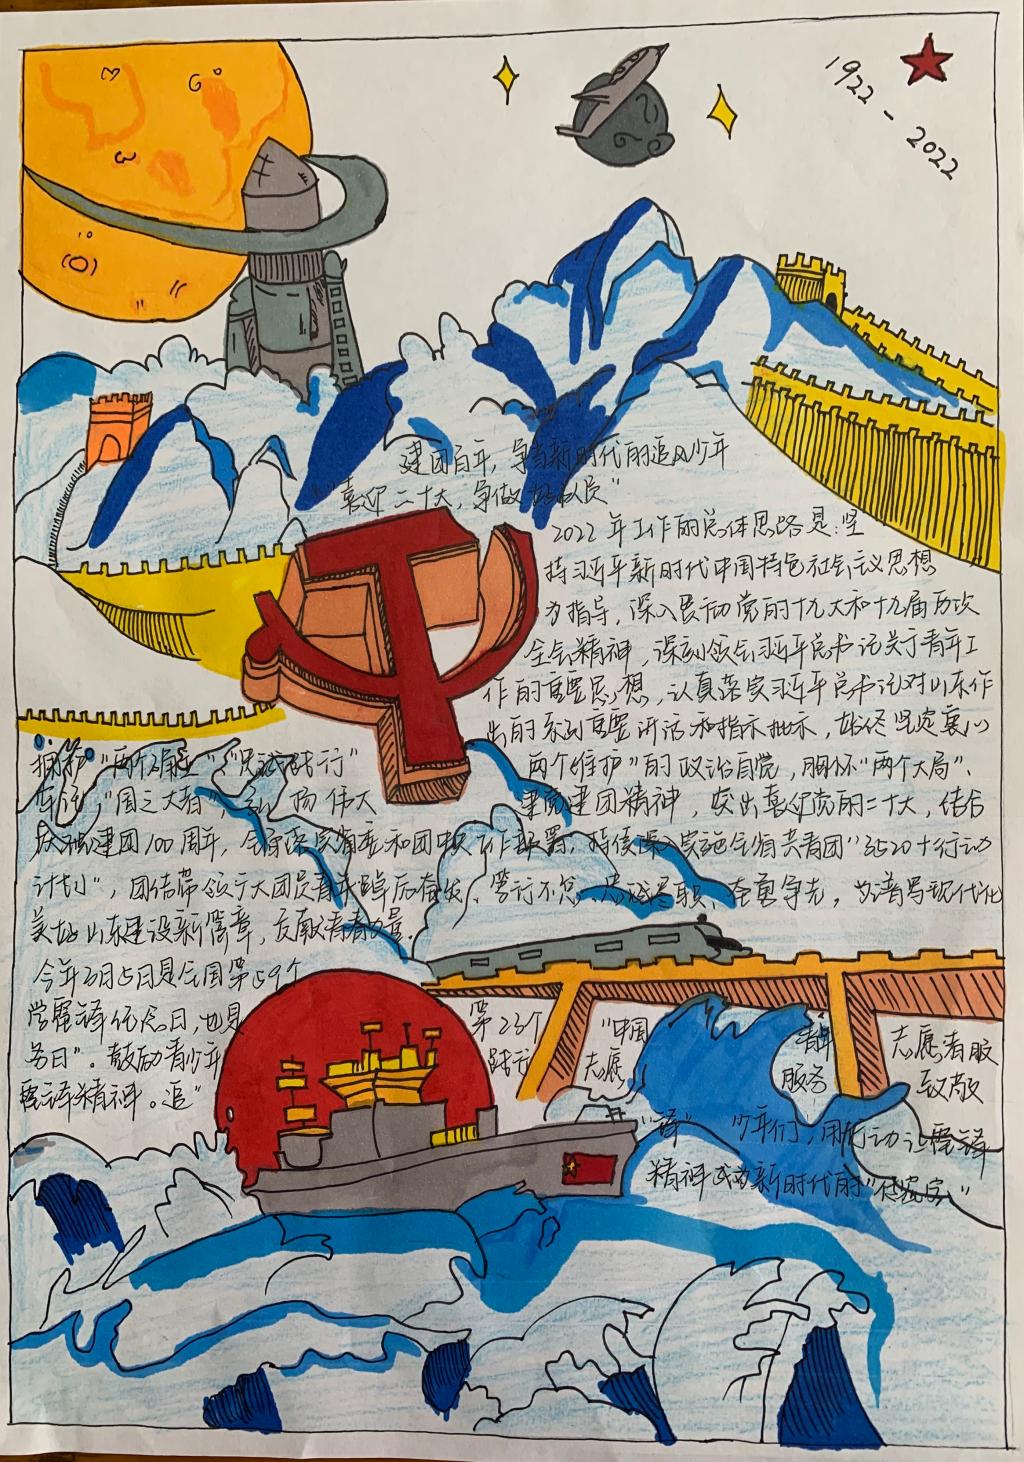 1922-2022
建团百年,争当新时代的追风少年
"喜迎二十大,争做好队员"
2022年工作的总体思路是:坚
持习近平新时代中国特色社会主义思想
为指导,深入贯彻党的十九大和十九届历次
全会精神,深刻领会习近平总书记关于青年工
作的重要思想,认真落实习近平总书记对山东作
出的系列重要讲话和指示批示,始终坚定衷心
拥护"两个确立" "忠诚践行" 两个维护"的政治自觉,胸怀"两个大局"、
"国之大者", 扬伟大 建党建团精神,突出喜迎党的二十大,
庆祝建团100周年, 和团中央工作部署,持续深入实施全省共青团"
计划",团结带领广大团员青年踔厉奋发、笃行不怠、忠诚尽职、奋勇争先,谱写现代化
美好山东建设新篇章,贡献青春力量.
今年3月5日是全国第59个
学雷锋纪念日,也是 第23个 "中国 青年 志愿者服
务日"。鼓励青少年 践行 志愿 服务 致敬
雷锋精神。追"
"锋" 少年们,用行动让雷锋
精神成为新时代的"